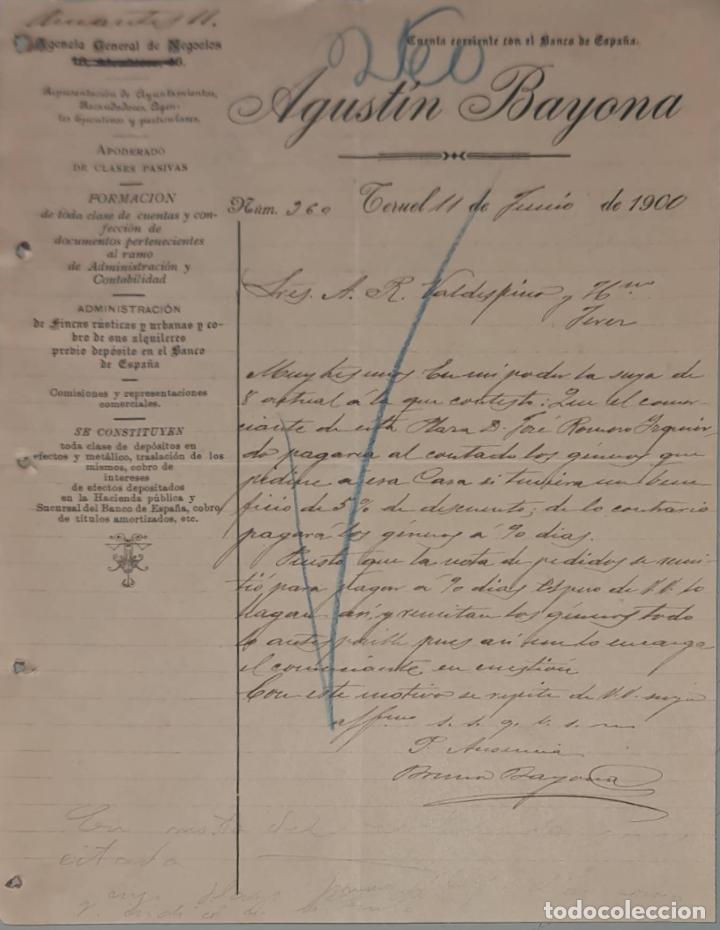 Amantes 11.
Agencia General de Negocios
Representación de Ayuntamientos,
Recaudadores, Agen-
tes Ejecutivos y particulares.
APODERADO
DE CLASES PASIVAS
FORMACION
de toda clase de cuentas y con-
fección de
documentos pertenecientes
al ramo
de Administración y
Contabilidad
ADMINISTRACIÓN
de Fincas rústicas y urbanas y co-
bro de sus alquileres
previo depósito en el Banco
de España
Comisiones y representaciones
comerciales.
SE CONSTITUYEN
toda clase de depósitos en
efectos y metálico, traslación de los
mismos, cobro de
intereses
de efectos depositados
en la Hacienda pública y
Sucursal del Banco de España, cobro
de títulos amortizados, etc.
Cuenta corriente con el Banco de España.
Agustín Bayona
Núm. 360 Teruel 11 de Junio de 1900
Sres. A. R. Valdespino y Hno
Jerez
Muy Sres mios: En mi poder la suya de
8 actual á la que contesto: Que el comer-
ciante de esta Plaza D. José Romero Izquier-
do pagaria al contado los géneros que
pidiere a esa Casa si tuviera un bene-
ficio de 5% de descuento; de lo contrario
pagará los géneros á 90 dias.
Puesto que la nota de pedidos se remi-
tió para pagar á 90 dias espero de V.V. lo
hagan así, y remitan los géneros todo
lo antes posible pues asi me lo encarga
el comerciante en cuestión
Con este motivo se repite de V.V. suyo
affmo s. s. q. b. s. m
P. Ausencia
Bruno Bayona
En
citada
todocoleccion.net